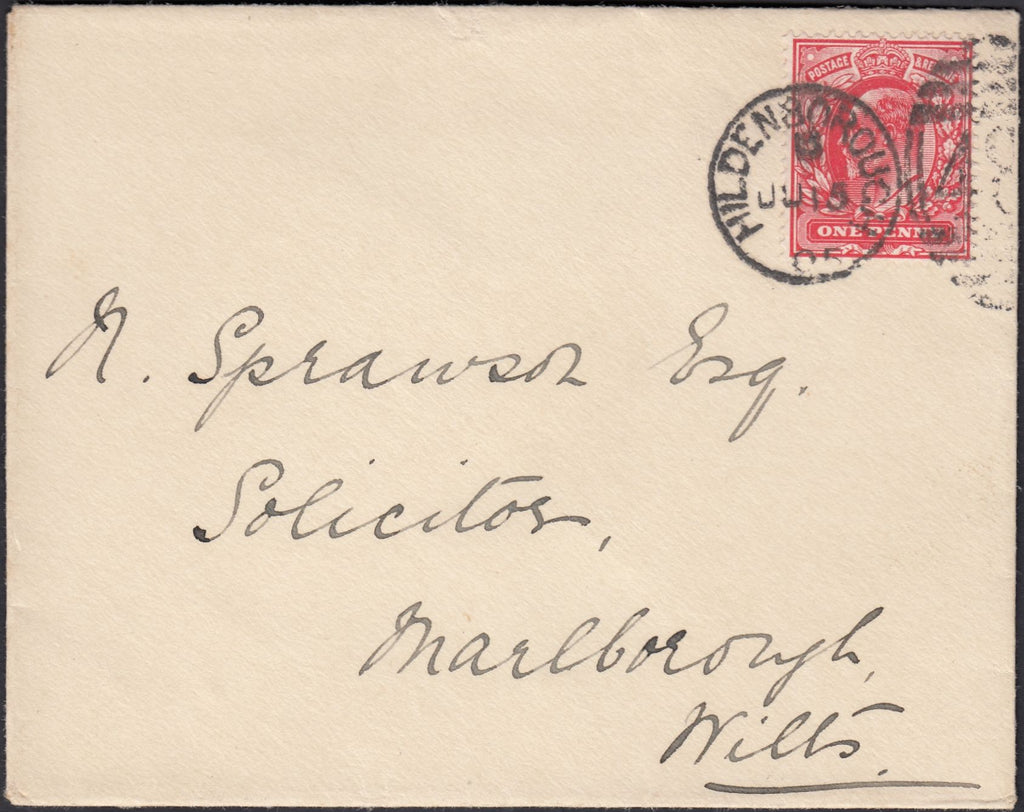 POSTAGE & RE
HILDENBOROUGH
JU 15
05
ONE PENNY
N. Sprawson Esq.
Solicitor,
Marlborough,
Wilts.